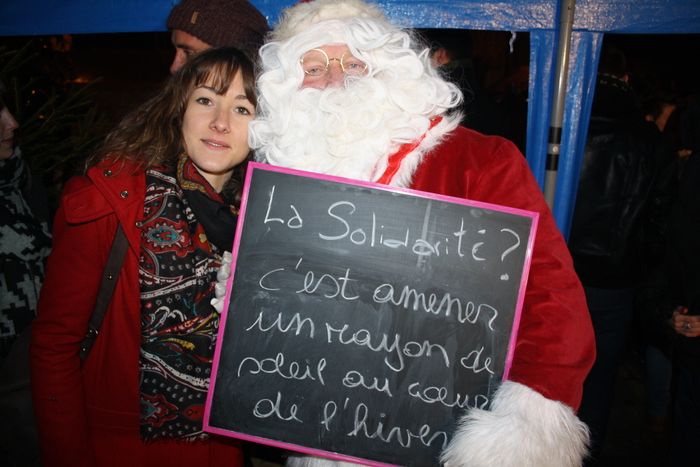 La Solidarité?
c'est amener
un rayon de
soleil au cœur
de l'hiver